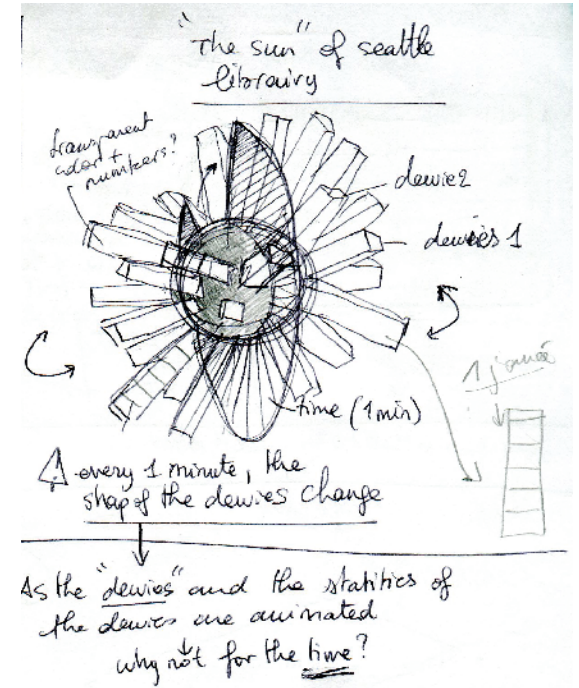 "The sun" of seattle
librairy
transparent
color +
numbers?
dewie2
dewies 1
1 journé
time (1min)
every 1 minute, the
shap of the dewies change
As the "dewies" and the statitics of
the dewies are animated
why not for the time?